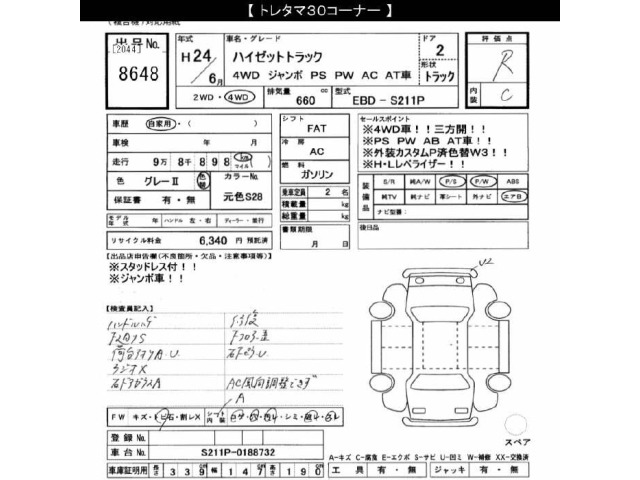 【 トレタマ30コーナー 】
出品No.
[2044]
8648
年式
H24
6月
車名・グレード
ハイゼットトラック
4WD ジャンボ PS PW AC AT車
ドア
2
形状
トラック
評価点
R
内装
C
2WD・4WD
排気量
660 cc
型式
EBD-S211P
車歴 自家用・( )
車検 年 月
走行 9万 8千 8 9 8 km マイル
色 グレーⅡ 色替
カラーNo.
元色S28
保証書 有・無
シフト
FAT
冷房
AC
燃料
ガソリン
乗車定員 2 名
積載量 kg
総重量 kg
セールスポイント
※4WD車!!三方開!!
※PS PW AB AT車!!
※外装カスタムP済色替W3!!
※H・Lレベライザー!!
装備品
S/R 純A/W P/S P/W ABS
純TV 純ナビ 革シート 外ナビ エアB
ナビ型番:
モデル年式 年 ハンドル 左・右 ディーラー・並行
リサイクル料金 6,340 円 預託済
書類期限
月 日
後日品
[出品店申告欄(不良箇所・欠品・注意事項等)]
※スタッドレス付!!
※ジャンボ車!!
[検査員記入]
ラジオX
AC風向調整できず
A
FW キズ・トビ石・割レX
シート内装
登録No.
車台No. S211P-0188732
車庫証明用 長さ 339 幅 147 高さ 190
工具 有・無 ジャッキ 有・無
スペア
A-キズ C-腐食 E-エクボ S-サビ U-凹ミ W-補修 XX-交換済